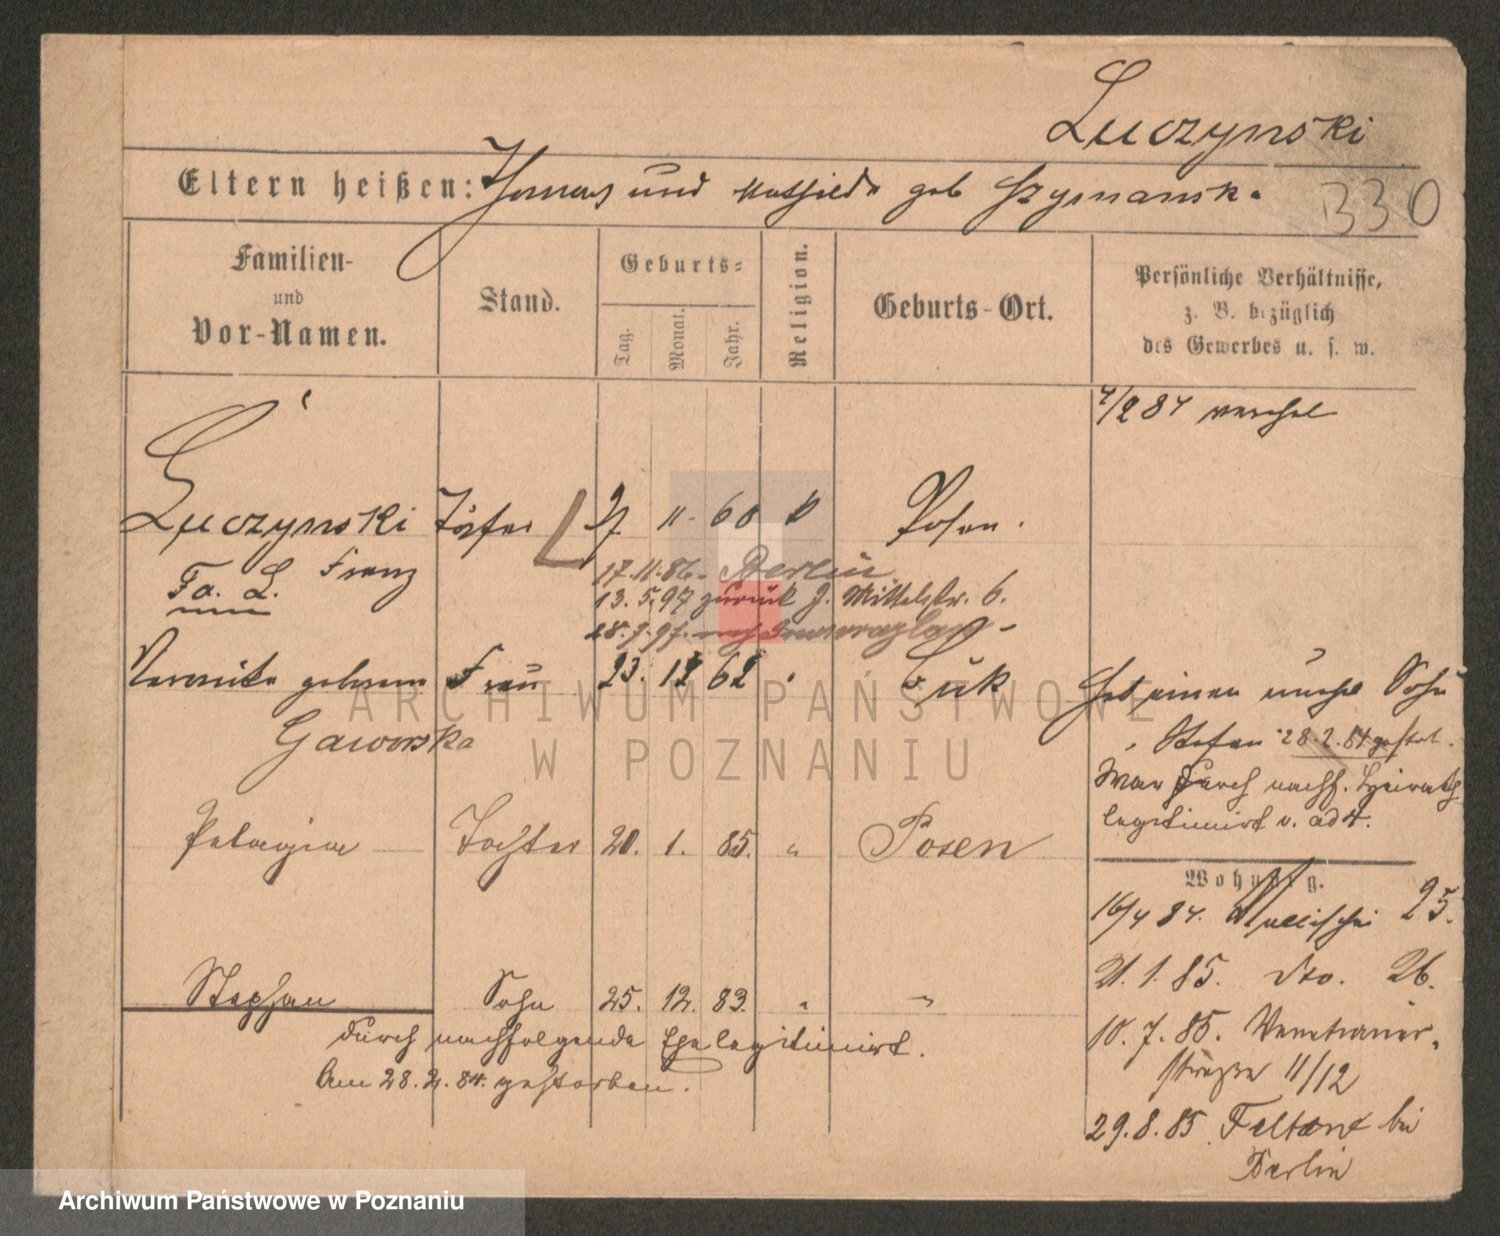 Luczynski
Eltern heißen: Thomas und Mathilde geb Szymanska
330
Familien-
und
Vor-Namen.
Stand.
Geburts-
Tag.
Monat.
Jahr.
Religion.
Geburts-Ort.
Persönliche Verhältnisse,
z. B. bezüglich
des Gewerbes u. s. w.
4/2 84
Luczynski Töpfer 11. 60 k Posen.
Franz
Fa. L.
17.11.86. Berlin
13.5.97 zurück J. Mittelstr. 6.
28.7.97. nach Inowrazlaw
Veronika geborene Frau 23. 12 62 Buk
Gaworska
Hat einen unehel Sohn
Stefan 28.2.84 gestorb.
War durch nachf. Heirath
legitimirt u. adt.
Pelagia Tochter 20. 1. 85. " Posen
Stephan Sohn 25. 12. 83. " "
durch nachfolgende Ehe legitimirt.
Am 28.2.84. gestorben.
Wohnung.
16/4 84. Wallischei 25.
21.1.85. dto. 26.
10.7.85. Venetianer-
straße 11/12
29.8.85. Feltow bei
Berlin
ARCHIWUM PAŃSTWOWE
W POZNANIU
Archiwum Państwowe w Poznaniu